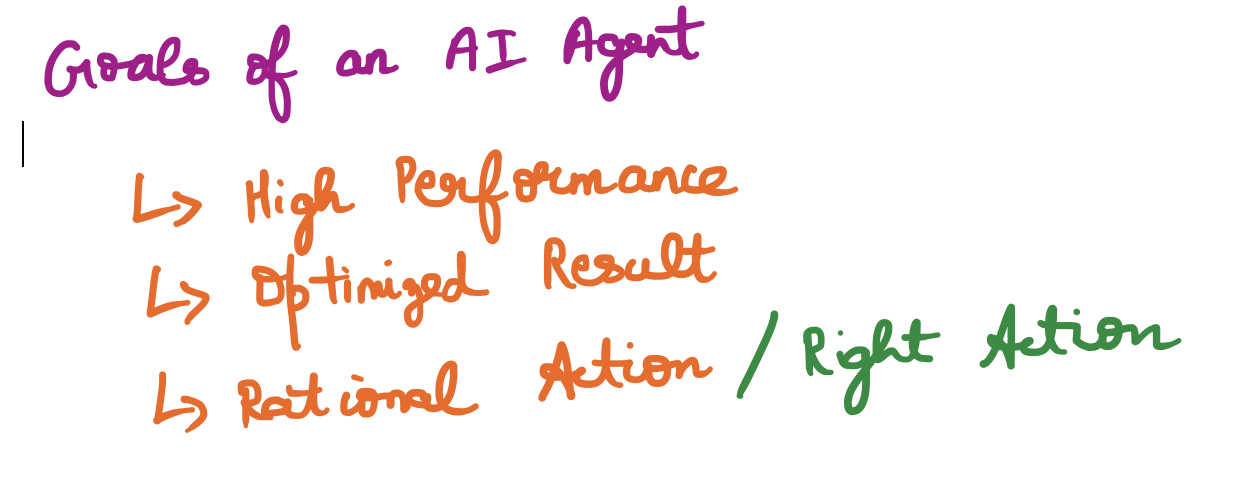 Goals of an AI Agent
↳ High Performance
↳ Optimized Result
↳ Rational Action / Right Action